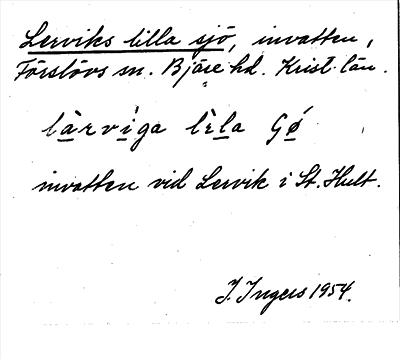 Lerviks lilla sjö, invatten,
Förslövs sn. Bjäre hd. Krist. län.
làrviga lìla Gǿ
invatten vid Lervik i St. Hult.
J. Ingers 1954.